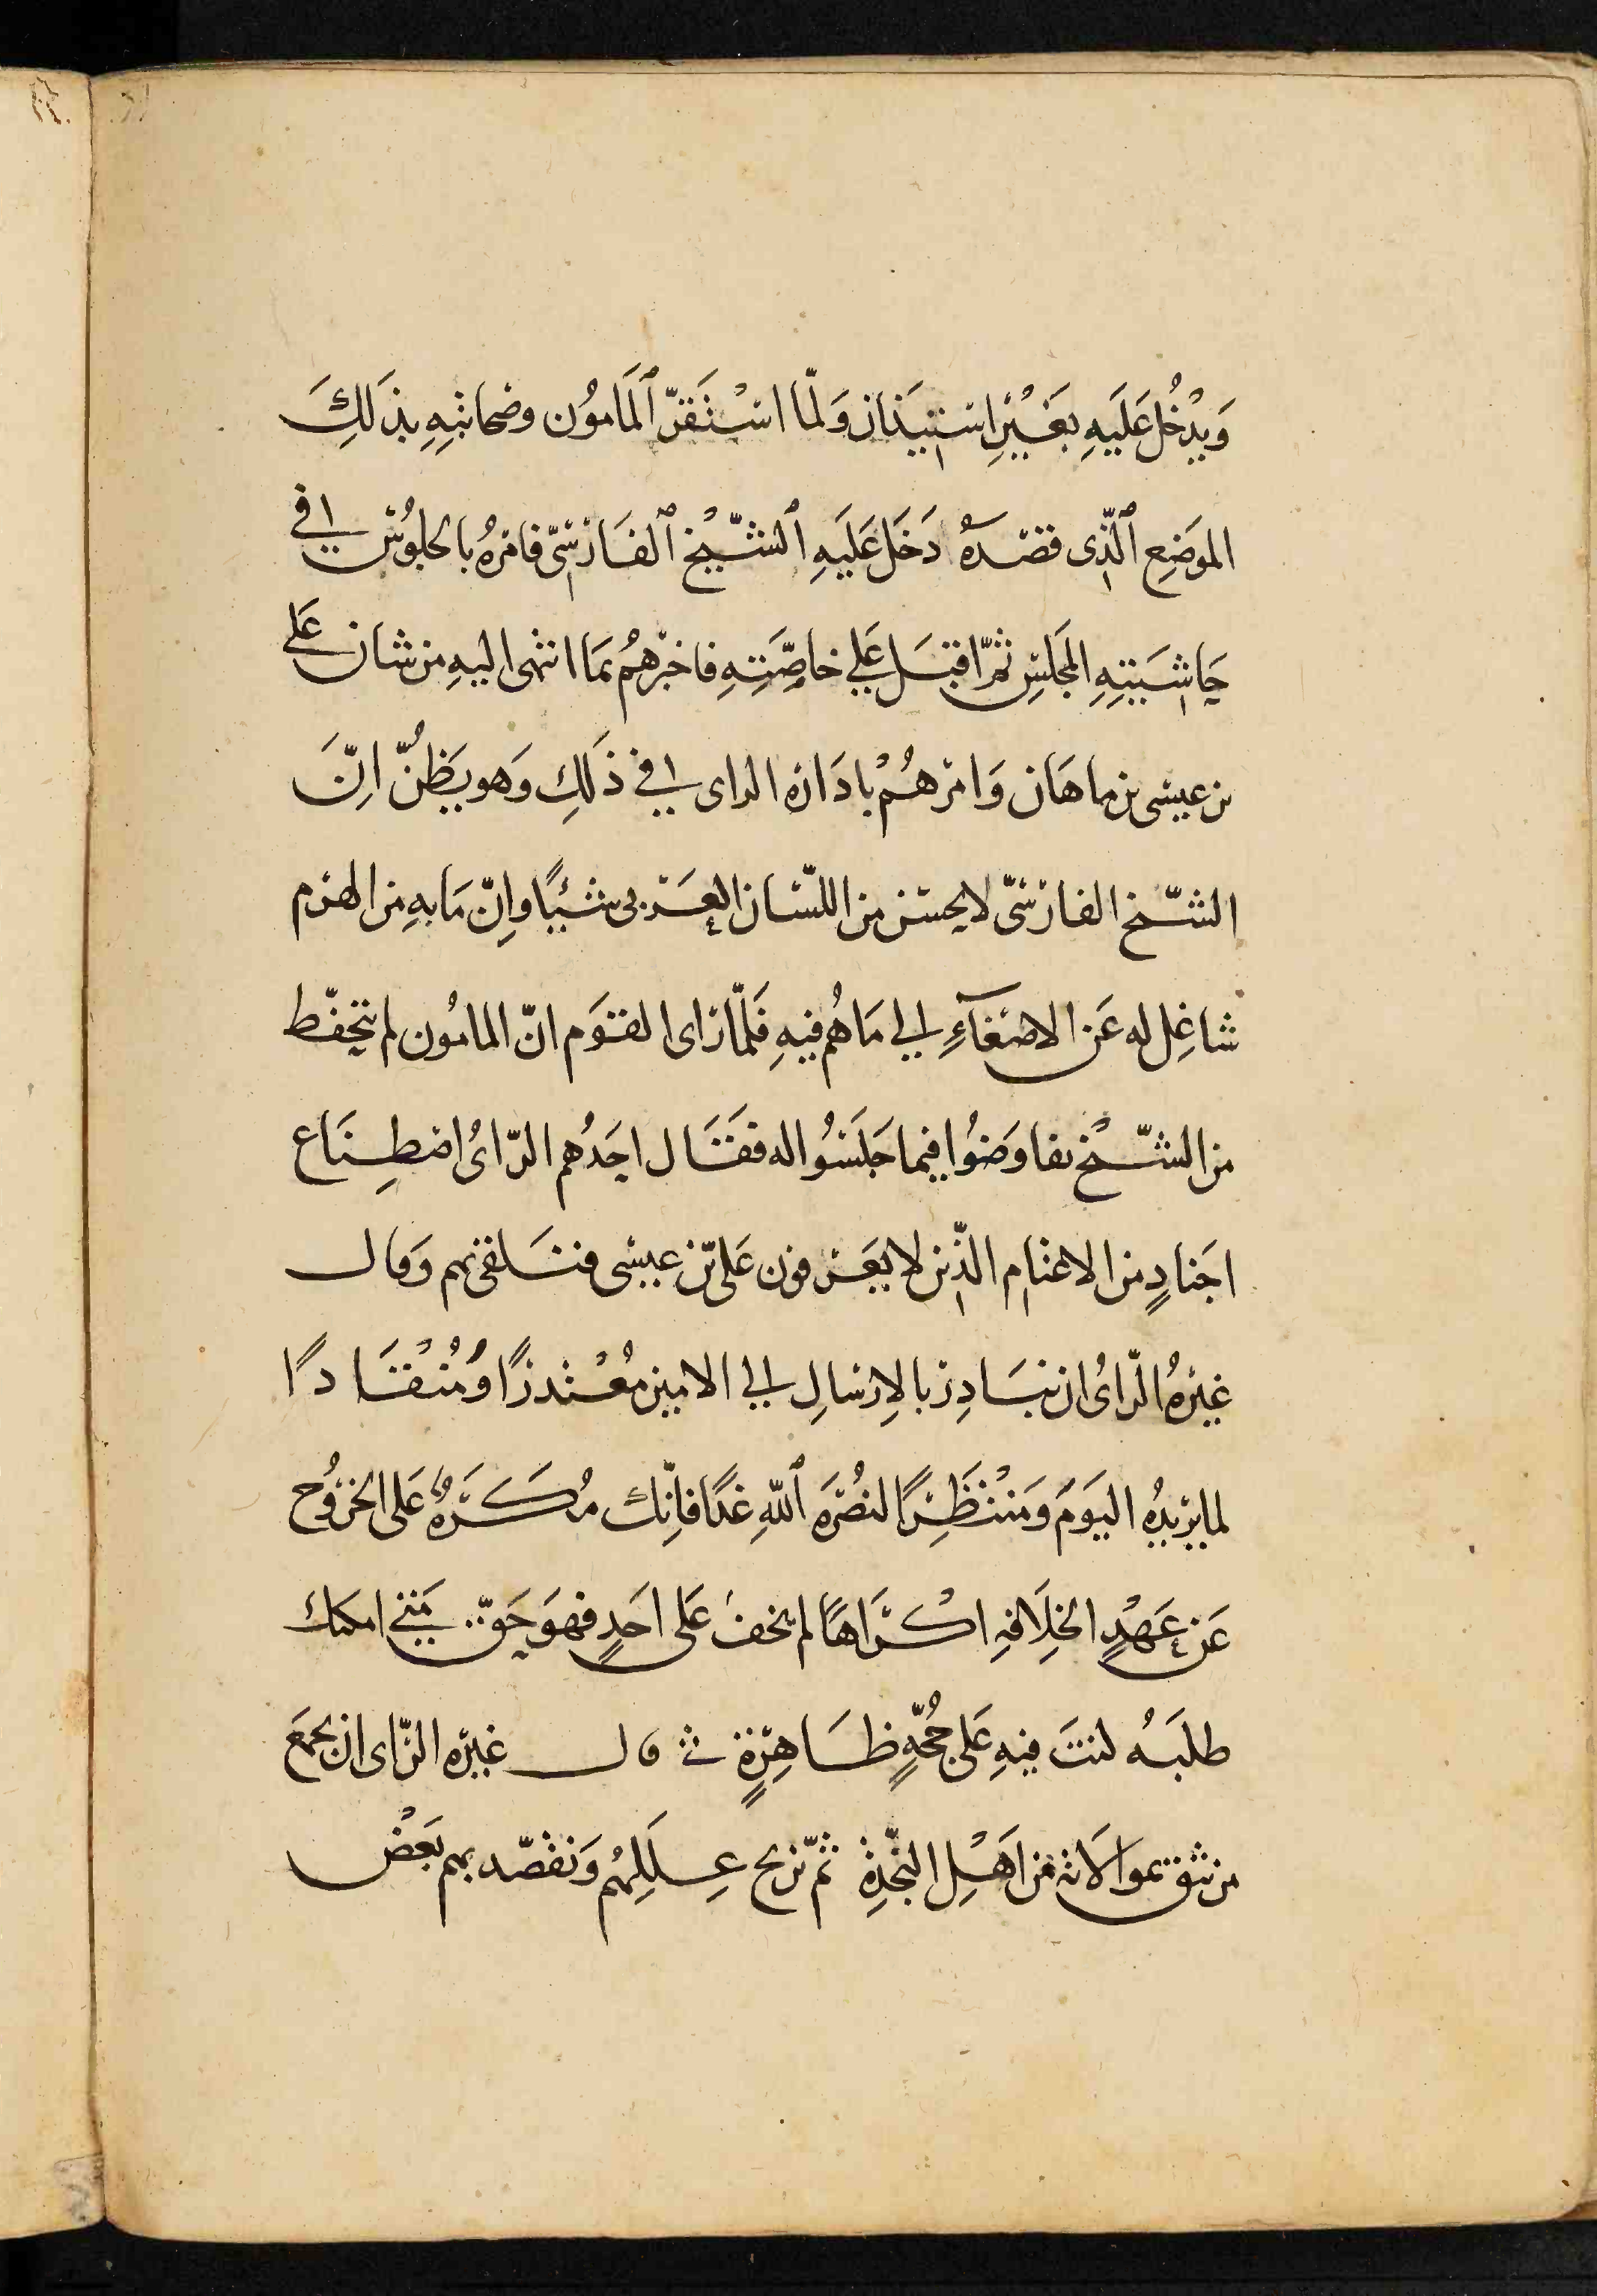 وَيدْخُل عَلَيهِ بغَيْرِ استيذان وَلمّا اسْتَقَرّ ٱلمَامُون وصحابتِهِ بذَلِكَ
الموَضِع ٱلّذِى قصَدَهُ دَخَل عَلَيهِ ٱلشّيْخ ٱلفَارسِىّ فامرهُ بالجلوُس في
حَاشَيتِهِ المجَلسِ ثمّ اقبَل عَلي خاصِّتهِ فاخبرهُم بمَا انتهى اليهِ من شان عَلى
بن عيسى بن ماهَان وَامرهُمْ بادَارة الراى في ذَلِكَ وَهو يَظُنّ انّ
الشّيخ الفارسىّ لا يحسن من اللسّان العَربى شيًا وانّ مَا به من الهرم
شاغِل له عَن الاصغآءِ الي مَا هُم فيهِ فَلمّا راى القوَم انّ المامُون لم يتحفّظ
من الشّيْخ تفاوَضُوا فيما جَلَسُوا له فقَال احَدُهم الرّاىُ اصْطِنَاع
اجَنادٍ من الاغتام الذّين لا يعَرفون عَلىّ بن عيسى فنَلقى بهم وَقال
غيرهُ الرّاىُ ان نبَادِر بالاِرسَالِ الي الامين مُعْتذرًا وَمُنْقَادًا
لما يريدُه اليَومَ وَمنْتَظِرًا لنصُرَه ٱللّهِ غدًا فانّك مُكَرَهٌ عَلى الخرُوج
عَن عَهْدٍ الخِلَافهِ اكْرَاهًا لم يخفَ عَلى احَدٍ فهوَ حَقّ متي امكنك
طلَبَهُ لنتَ فيهِ عَلى حُجّهٍ ظَاهِرةٍ وقال غيره الرّاى ان نجمَع
من نثق بموالاته من اهْل النجّدةِ ثمّ نزيح عِلَلهُم وَنقصّد بهم بَعْض